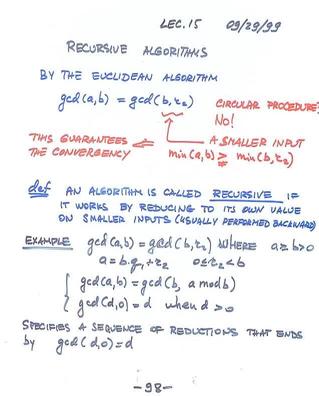 LEC. 15 09/29/99
RECURSIVE ALGORITHMS
BY THE EUCLIDEAN ALGORITHM
gcd(a,b) = gcd(b, r₂)
CIRCULAR PROCEDURE?
NO!
THIS GUARANTEES ⇐ A SMALLER INPUT
THE CONVERGENCY
min(a,b) ≥ min(b, r₂)
def AN ALGORITHM IS CALLED RECURSIVE IF
IT WORKS BY REDUCING TO ITS OWN VALUE
ON SMALLER INPUTS (USUALLY PERFORMED BACKWARD)
EXAMPLE gcd(a,b) = gcd(b, r₂) WHERE a ≥ b > 0
a = b·q₁ + r₂ 0 ≤ r₂ < b
{ gcd(a,b) = gcd(b, a mod b)
gcd(d,0) = d when d > 0
SPECIFIES A SEQUENCE OF REDUCTIONS THAT ENDS
by gcd(d,0) = d
-98-